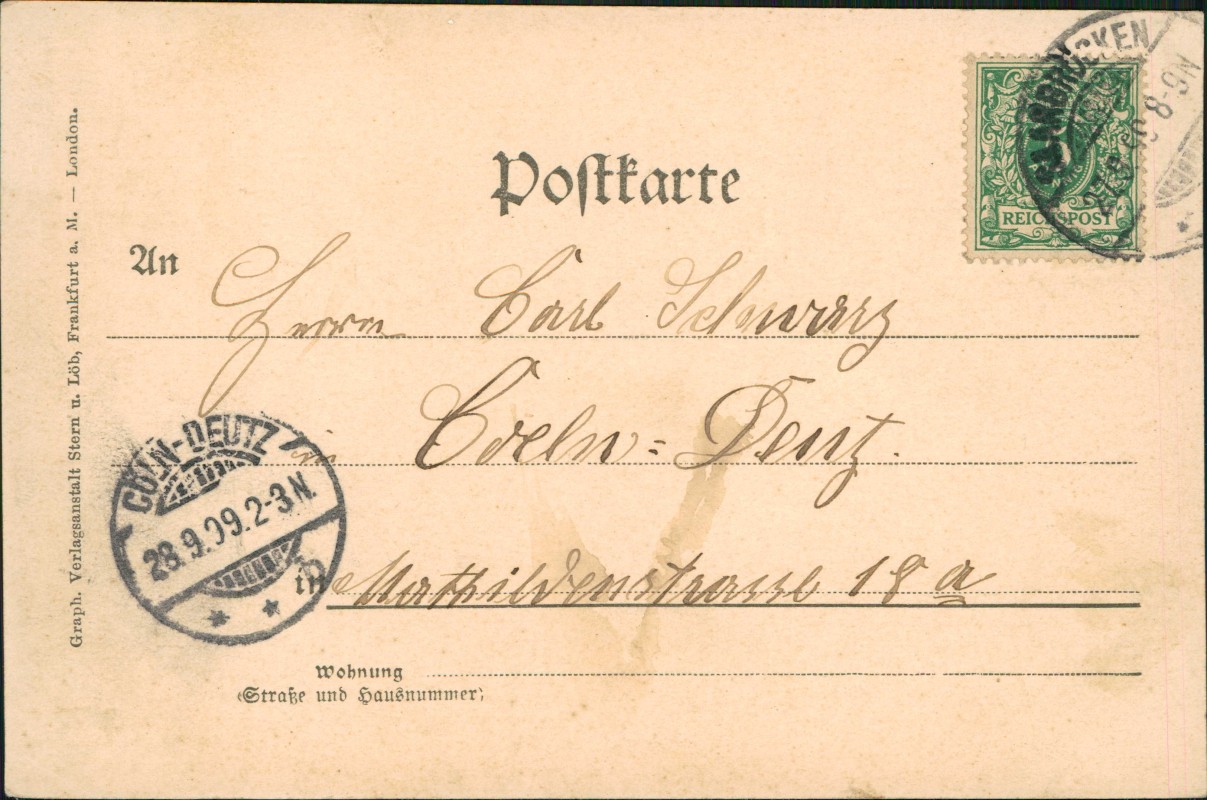 Graph. Verlagsanstalt Stern u. Löb, Frankfurt a. M. — London.
Postkarte
REICHSPOST
5
27.9.99 8-9N
An
Herrn Carl Schwarz
in Coeln-Deutz.
CÖLN-DEUTZ
28.9.99.2-3N.
in Mathildenstrasse 18 a
Wohnung
(Straße und Hausnummer)